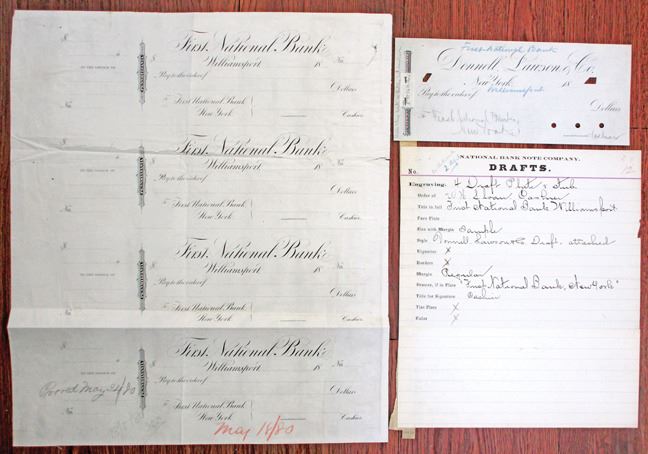 First National Bank
Williamsport 18 No.
Pay to the order of
Dollars
To First National Bank
New York Cashier
$
TO THE ORDER OF
No.
First National Bank
Williamsport 18 No.
Pay to the order of
Dollars
To First National Bank
New York Cashier
$
TO THE ORDER OF
No.
First National Bank
Williamsport 18 No.
Pay to the order of
Dollars
To First National Bank
New York Cashier
$
TO THE ORDER OF
No.
First National Bank
Williamsport 18 No.
Pay to the order of
Dollars
To First National Bank
New York Cashier
$
Proved May 24/80
No.
May 18/80
First National Bank
Donnell, Lawson & Co.
New York 18
Williamsport
Pay to the order of
Dollars
To First National Bank
New York
Cashier
NATIONAL BANK NOTE COMPANY.
DRAFTS.
No.
12
Engraving. 4 Draft Plate & Stub
Order of Sloan Cashier
Title in full First National Bank Williamsport
Face Plate
Size with Margin Sample
Style Donnell Lawson & Co Draft attached
Vignette x
Borders x
Margin Regular
Drawee, if in Plate "First National Bank, New York"
Title for Signature Cashier
Tint Plate x
Color x